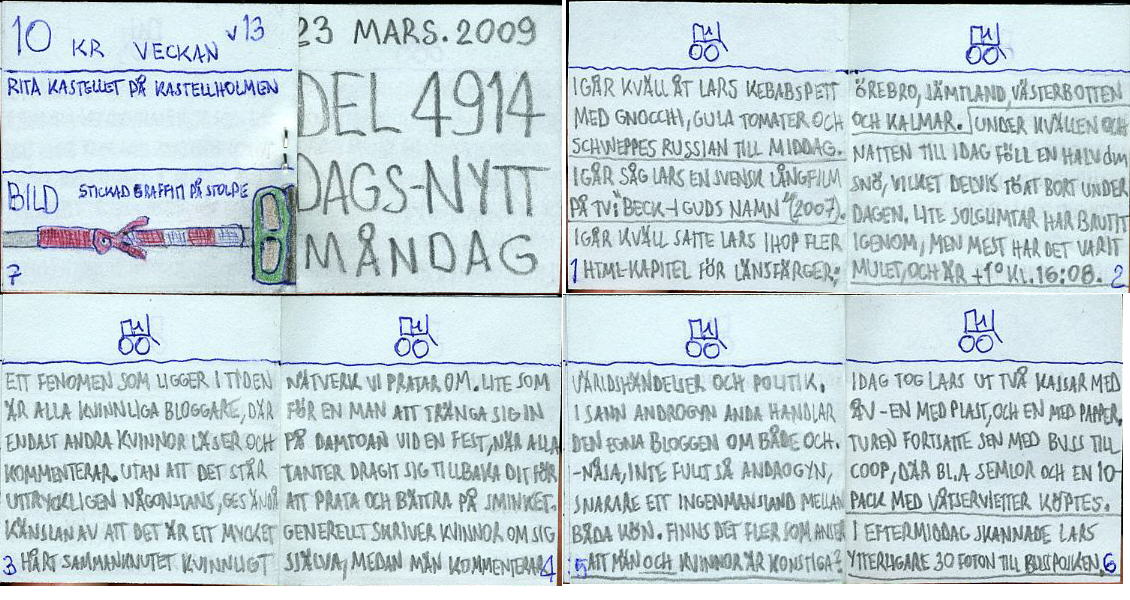 10 KR VECKAN v13
RITA KASTELLET PÅ KASTELLHOLMEN
BILD STICKAD GRAFFITI PÅ STOLPE
7
23 MARS. 2009
DEL 4914
DAGS-NYTT
MÅNDAG
IGÅR KVÄLL ÅT LARS KEBABSPETT
MED GNOCCHI, GULA TOMATER OCH
SCHWEPPES RUSSIAN TILL MIDDAG.
IGÅR SÅG LARS EN SVENSK LÅNGFILM
PÅ TV: "BECK-I GUDS NAMN" (2007).
IGÅR KVÄLL SATTE LARS IHOP FLER
HTML-KAPITEL FÖR LÄNSFÄRGER:
1
ÖREBRO, JÄMTLAND, VÄSTERBOTTEN
OCH KALMAR. UNDER KVÄLLEN OCH
NATTEN TILL IDAG FÖLL EN HALV dm
SNÖ, VILKET DELVIS TÖAT BORT UNDER
DAGEN. LITE SOLGLIMTAR HAR BRUTIT
IGENOM, MEN MEST HAR DET VARIT
MULET, OCH ÄR +1° KL.16:08.
2
ETT FENOMEN SOM LIGGER I TIDEN
ÄR ALLA KVINNLIGA BLOGGARE, DÄR
ENDAST ANDRA KVINNOR LÄSER OCH
KOMMENTERAR. UTAN ATT DET STÅR
UTTRYCKLIGEN NÅGONSTANS, GES ÄNDÅ
KÄNSLAN AV ATT DET ÄR ETT MYCKET
HÅRT SAMMANKNUTET KVINNLIGT
3
NÄTVERK VI PRATAR OM. LITE SOM
FÖR EN MAN ATT TRÄNGA SIG IN
PÅ DAMTOAN VID EN FEST, NÄR ALLA
TANTER DRAGIT SIG TILLBAKA DIT FÖR
ATT PRATA OCH BÄTTRA PÅ SMINKET.
GENERELLT SKRIVER KVINNOR OM SIG
SJÄLVA, MEDAN MÄN KOMMENTERAR
4
VÄRLDSHÄNDELSER OCH POLITIK.
I SANN ANDROGYN ANDA HANDLAR
DEN EGNA BLOGGEN OM BÅDE OCH.
-NÄJA, INTE FULLT SÅ ANDROGYN,
SNARARE ETT INGENMANSLAND MELLAN
BÅDA KÖN. FINNS DET FLER SOM ANSER
ATT MÄN OCH KVINNOR ÄR KONSTIGA?
5
IDAG TOG LARS UT TVÅ KASSAR MED
ÅV - EN MED PLAST, OCH EN MED PAPPER.
TUREN FORTSATTE SEN MED BUSS TILL
COOP, DÄR BL.A SEMLOR OCH EN 10-
PACK MED VÅTSERVIETTER KÖPTES.
I EFTERMIDDAG SKANNADE LARS
YTTERLIGARE 30 FOTON TILL BUSSPOJKEN.
6